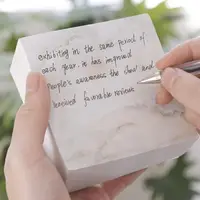 exhibiting in the same period of
each year. it has improved
People's awareness the show and
received favorable review